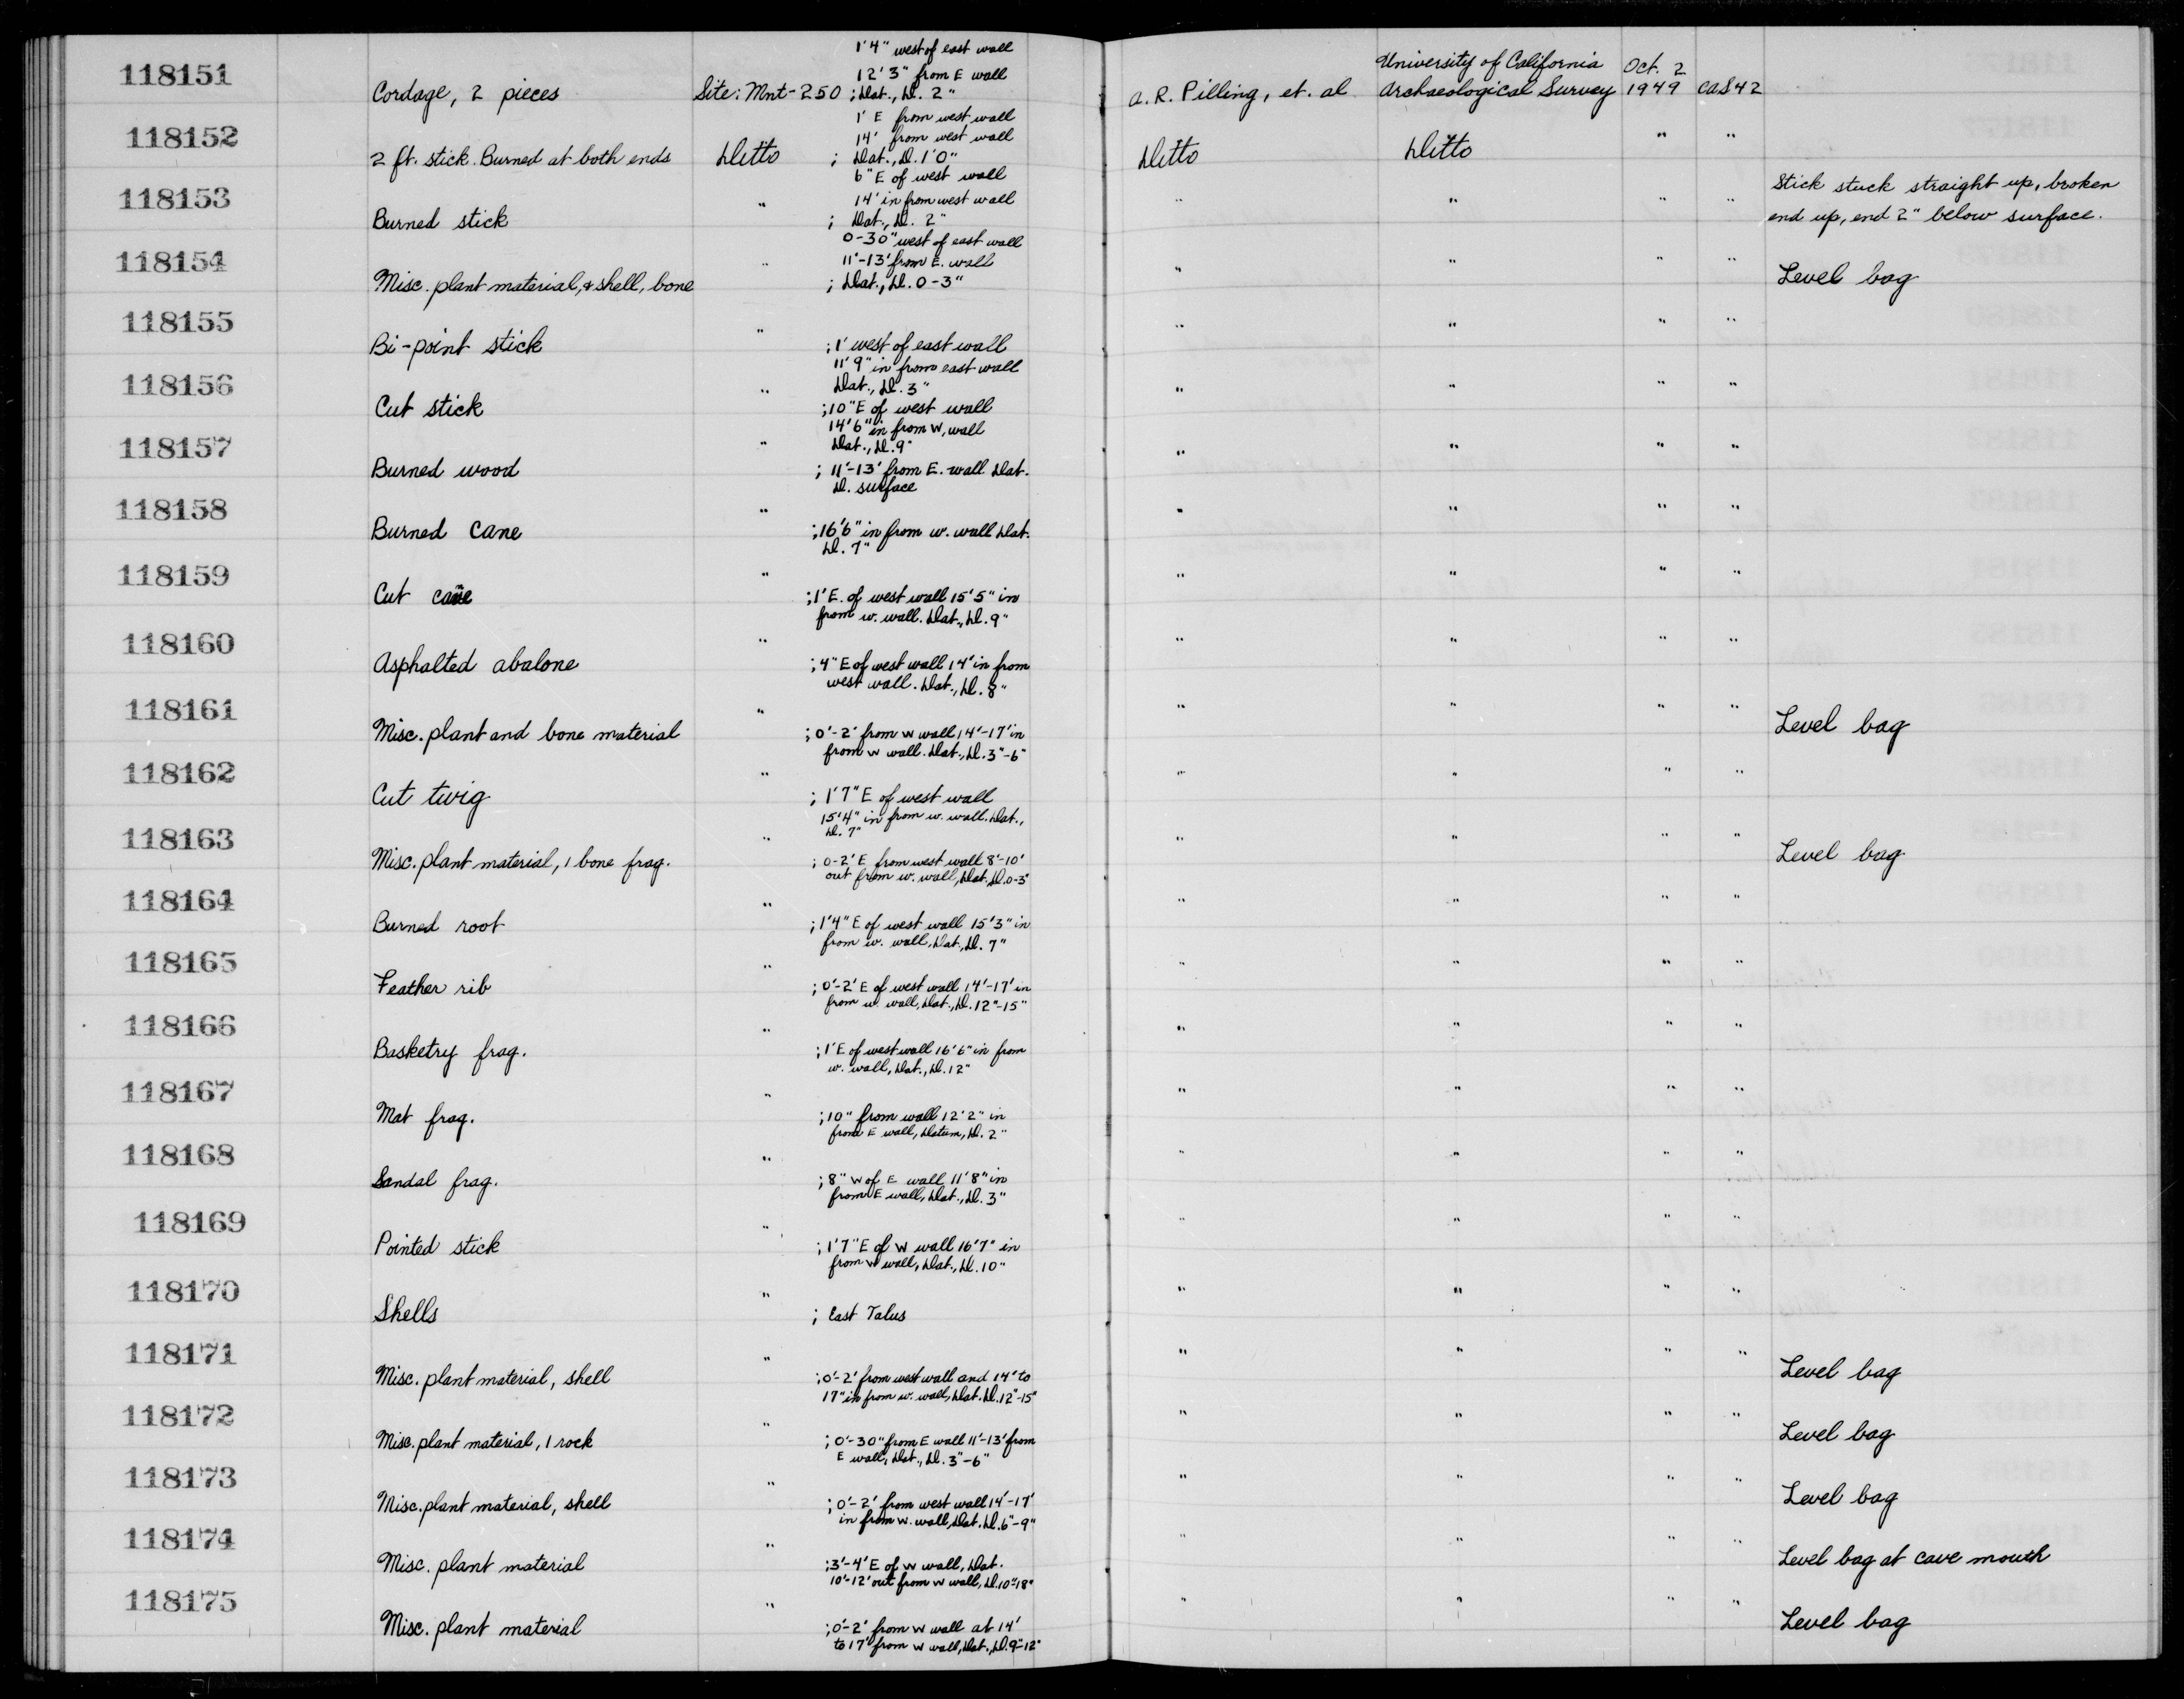 118151
Cordage, 2 pieces Site: Mnt-250
1'4" west of east wall
12'3" from E wall
; Dat., D. 2"
A. R. Pilling, et. al
University of California
Archaeological Survey
Oct. 2
1949
CAS 42
118152
2 ft. stick. Burned at both ends Ditto
1' E from west wall
14' from west wall
; Dat., D. 1'0"
Ditto Ditto " "
118153
Burned stick "
6" E of west wall
14' in from west wall
; Dat., D. 2"
" " " "
Stick stuck straight up, broken
end up, end 2" below surface.
118154
Misc. plant material, & shell, bone "
0-30" west of east wall
11'-13' from E. wall
; Dat., D. 0-3"
" " " " Level bag
118155
Bi-point stick "
; 1' west of east wall
11'9" in from east wall
Dat., D. 3"
" " " "
118156
Cut stick "
; 10" E of west wall
14'6" in from W. wall
Dat., D. 9"
" " " "
118157
Burned wood "
; 11'-13' from E. wall. Dat.
D. surface
" " " "
118158
Burned cane "
; 16'6" in from w. wall Dat.
D. 7"
" " " "
118159
Cut cane "
; 1' E. of west wall 15'5" in
from w. wall. Dat., D. 9"
" " " "
118160
Asphalted abalone "
; 4" E of west wall 14' in from
west wall. Dat., D. 8"
" " " "
118161
Misc. plant and bone material "
; 0'-2' from W wall 14'-17' in
from W wall. Dat., D. 3"-6"
" " " " Level bag
118162
Cut twig "
; 1'7" E of west wall
15'4" in from w. wall. Dat.,
D. 7"
" " " "
118163
Misc. plant material, 1 bone frag. "
; 0-2' E from west wall 8'-10'
out from w. wall, Dat., D. 0-3"
" " " " Level bag
118164
Burned root "
; 1'4" E of west wall 15'3" in
from w. wall, Dat., D. 7"
" " " "
118165
Feather rib "
; 0'-2' E of west wall 14'-17' in
from w. wall, Dat., D. 12"-15"
" " " "
118166
Basketry frag. "
; 1' E of west wall 16'6" in from
w. wall, Dat., D. 12"
" " " "
118167
Mat frag. "
; 10" from wall 12'2" in
from E wall, Datum, D. 2"
" " " "
118168
Sandal frag. "
; 8" W of E wall 11'8" in
from E wall, Dat., D. 3"
" " " "
118169
Pointed stick "
; 1'7" E of W wall 16'7" in
from W wall, Dat., D. 10"
" " " "
118170
Shells "
; East Talus
" " " "
118171
Misc. plant material, shell "
; 0'-2' from west wall and 14' to
17" in from w. wall, Dat. D. 12"-15"
" " " " Level bag
118172
Misc. plant material, 1 rock "
; 0'-30" from E wall 11'-13' from
E wall, Dat., D. 3"-6"
" " " " Level bag
118173
Misc. plant material, shell "
; 0'-2' from west wall 14'-17'
in from w. wall, Dat. D. 6"-9"
" " " " Level bag
118174
Misc. plant material "
; 3'-4' E of W wall, Dat.
10'-12' out from W wall, D. 10"-18"
" " " " Level bag at cave mouth
118175
Misc. plant material "
; 0'-2' from W wall at 14'
to 17' from W wall, Dat., D. 9"-12"
" " " " Level bag